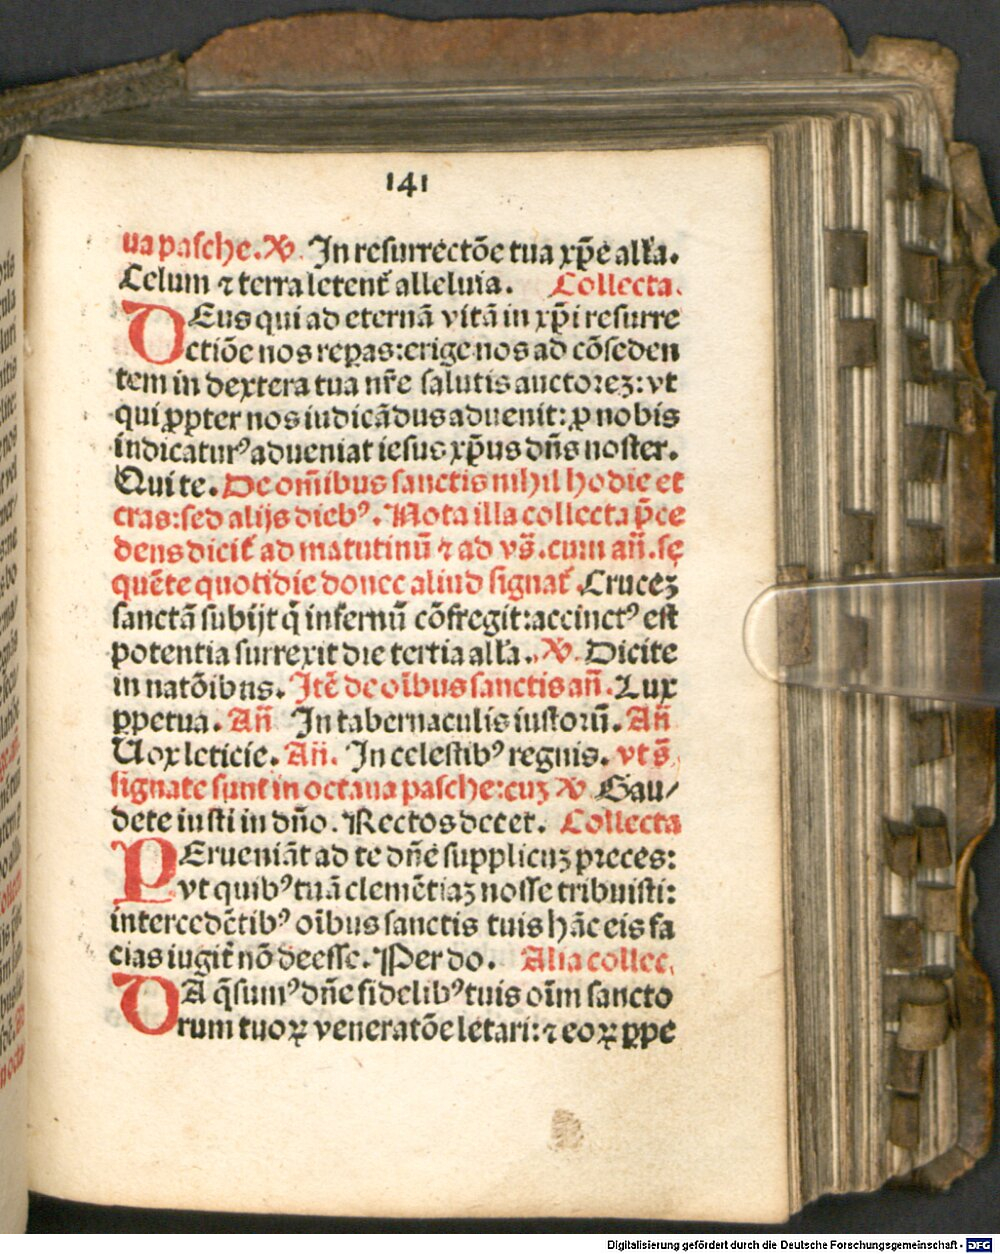 141
ua pasche. ℣. In resurrectōe tua xp̄e allꝛa.
Celum ⁊ terra letent̄ alleluia. Collecta.
DEus qui ad eternā vitā in xp̄i resurre
ctiōe nos reꝑas: erige nos ad cōseden
tem in dextera tua nr̄e salutis auctorez: vt
qui ꝓpter nos iudicādus aduenit: ꝓ nobis
indicaturꝰ adueniat iesus xp̄us dn̄s noster.
Qui te. De om̄ibus sanctis nihil hodie et
cras: sed alijs diebꝰ. Nota illa collecta p̄ce
dens dicit̄ ad matutinū ⁊ ad vs̄. cum an̄. sę
quēte quotidie donec aliud signat̄ Crucez
sanctā subijt q̄ infernū cōfregit: accinctꝰ est
potentia surrexit die tertia alla. ℣. Dicite
in natōibus. Itē de oībus sanctis an̄. Lux
ꝑpetua. An̄ In tabernaculis iustorū. An̄
Uox leticie. An̄. In celestibꝰ regnis. vt s̄.
signate sunt in octaua pasche: cuȝ ℣ Gau/
dete iusti in dn̄o. Rectos decet. Collecta
PErueniāt ad te dn̄e supplicuȝ preces:
vt quibꝰ tuā clemētiaȝ nosse tribuisti:
intercedētibꝰ oībus sanctis tuis hāc eis fa
cias iugit̄ nō deesse. Per do. Alia collec.
DA q̄sumꝰ dn̄e fidelibꝰ tuis oīm sancto
rum tuoꝝ veneratōe letari: ⁊ eoꝝ ꝑpe
Digitalisierung gefördert durch die Deutsche Forschungsgemeinschaft - DFG